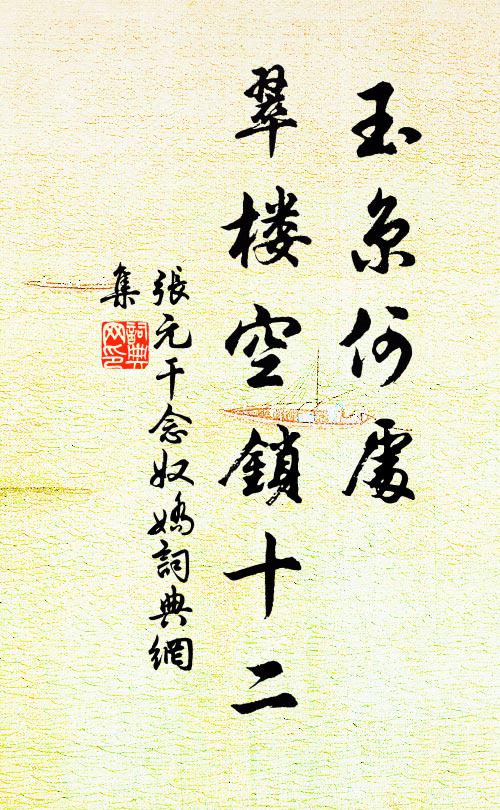 玉京何處
翠楼空鎖十二
張元干念奴嬌詞典網
集
詞典
网印